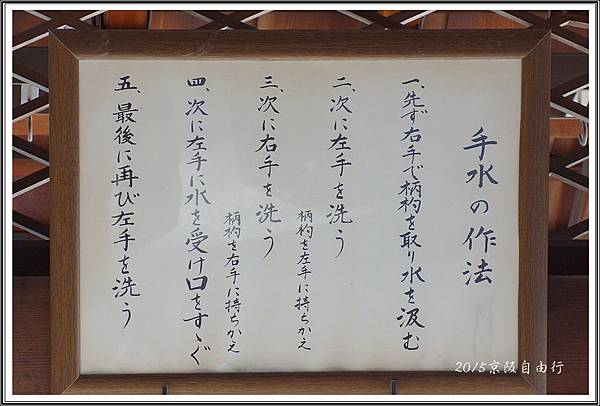 手水の作法
一、先ず右手で柄杓を取り水を汲む
二、次に左手を洗う
柄杓を左手に持ちかえ
三、次に右手を洗う
柄杓を右手に持ちかえ
四、次に左手に水を受け口をすゝぐ
五、最後に再び左手を洗う
2015京阪自由行